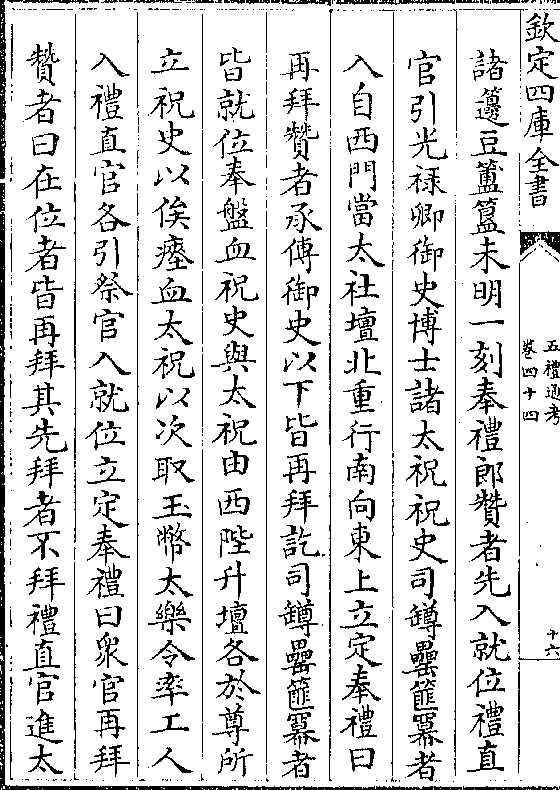 欽定四庫全書
五禮通考
卷四十四
十六
諸籩豆簠簋未明一刻奉禮郎贊者先入就位禮直
官引光祿卿御史博士諸太祝祝史司罇罍篚冪者
入自西門當太社壇北重行南向東上立定奉禮曰
再拜贊者承傳御史以下皆再拜訖司罇罍篚冪者
皆就位奉盤血祝史與太祝由西陛升壇各於尊所
立祝史以俟瘞血太祝以次取玉幣太樂令率工人
入禮直官各引祭官入就位立定奉禮曰衆官再拜
贊者曰在位者皆再拜其先拜者不拜禮直官進太